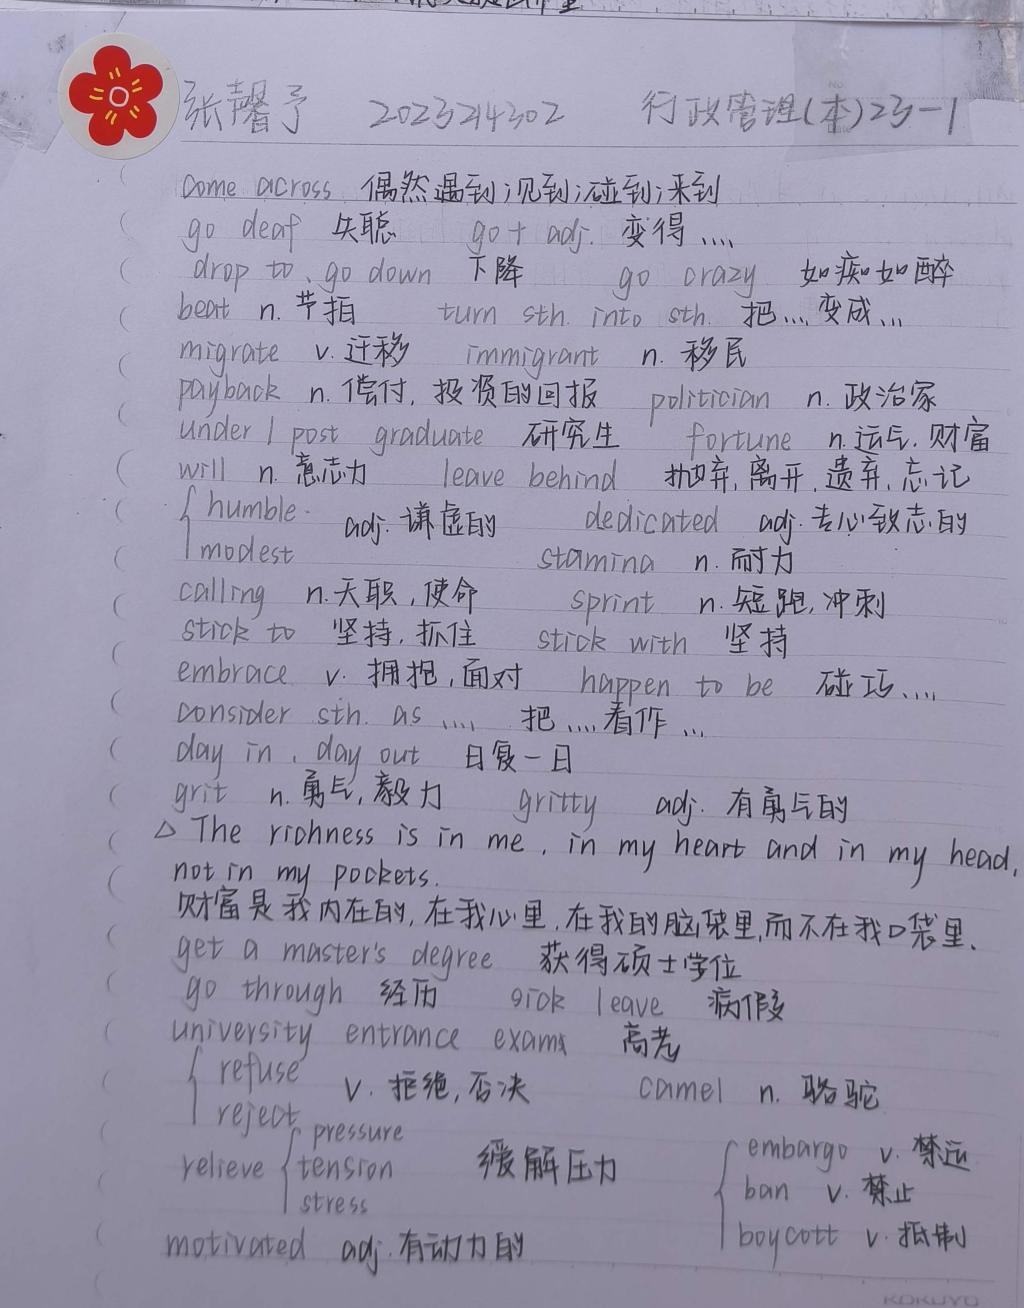 张馨予 2023214302 行政管理(本)23-1
come across 偶然遇到;见到;碰到;来到
go deaf 失聪 go + adj. 变得....
drop to、go down 下降 go crazy 如痴如醉
beat n. 节拍 turn sth. into sth. 把....变成...
migrate v. 迁移 immigrant n. 移民
payback n. 偿付, 投资的回报 politician n. 政治家
under / post graduate 研究生 fortune n. 运气. 财富
will n. 意志力 leave behind 抛弃, 离开, 遗弃, 忘记
humble
modest adj. 谦虚的 dedicated adj. 专心致志的
stamina n. 耐力
calling n. 天职, 使命 sprint n. 短跑, 冲刺
stick to 坚持, 抓住 stick with 坚持
embrace v. 拥抱, 面对 happen to be 碰巧....
consider sth. as .... 把....看作...
day in, day out 日复一日
grit n. 勇气, 毅力 gritty adj. 有勇气的
△ The richness is in me, in my heart and in my head,
not in my pockets.
财富是我内在的, 在我心里, 在我的脑袋里, 而不在我口袋里.
get a master's degree 获得硕士学位
go through 经历 sick leave 病假
university entrance exams 高考
refuse
reject v. 拒绝, 否决 camel n. 骆驼
relieve pressure
tension
stress 缓解压力
embargo v. 禁运
ban v. 禁止
boycott v. 抵制
motivated adj. 有动力的
KOKUYO